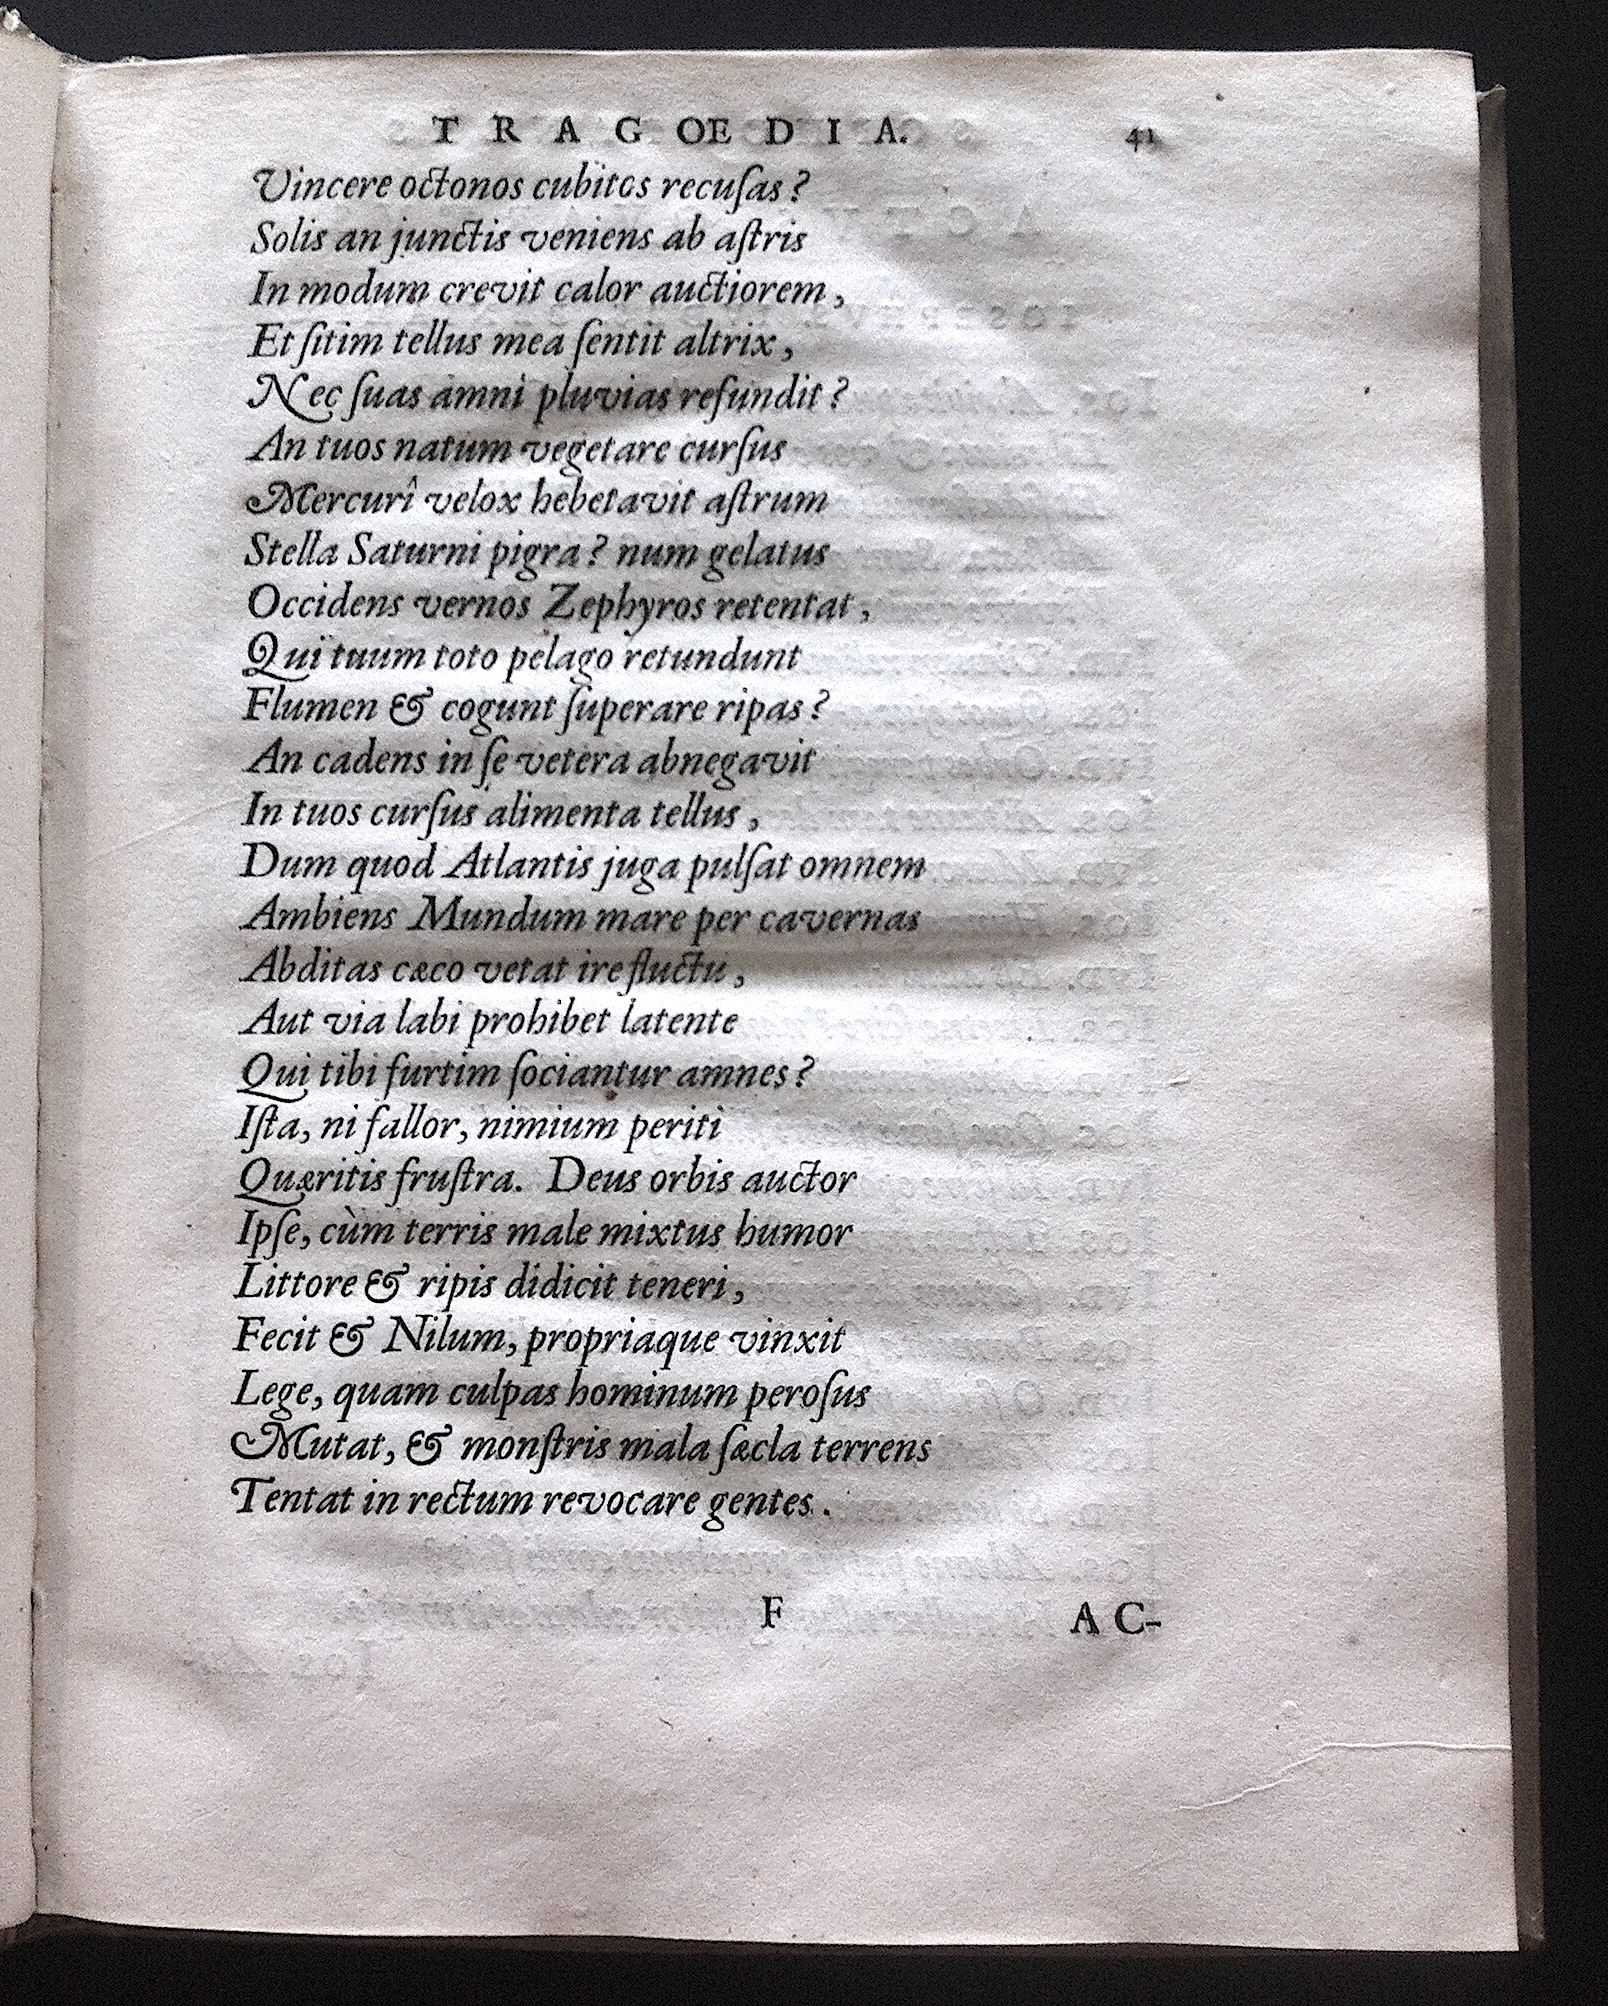 TRAGOEDIA. 41
Vincere octonos cubitos recuſas?
Solis an junctis veniens ab aſtris
In modum crevit calor auctiorem,
Et ſitim tellus mea ſentit altrix,
Nec ſuas amni pluvias refundit?
An tuos natum vegetare curſus
Mercurî velox hebetavit aſtrum
Stella Saturni pigra? num gelatus
Occidens vernos Zephyros retentat,
Qui tuum toto pelago retundunt
Flumen & cogunt ſuperare ripas?
An cadens in ſe vetera abnegavit
In tuos curſus alimenta tellus,
Dum quod Atlantis juga pulſat omnem
Ambiens Mundum mare per cavernas
Abditas cæco vetat ire fluctu,
Aut via labi prohibet latente
Qui tibi furtim ſociantur amnes?
Iſta, ni fallor, nimium periti
Quæritis fruſtra. Deus orbis auctor
Ipſe, cùm terris male mixtus humor
Littore & ripis didicit teneri,
Fecit & Nilum, propriaque vinxit
Lege, quam culpas hominum peroſus
Mutat, & monſtris mala ſæcla terrens
Tentat in rectum revocare gentes.
F AC-